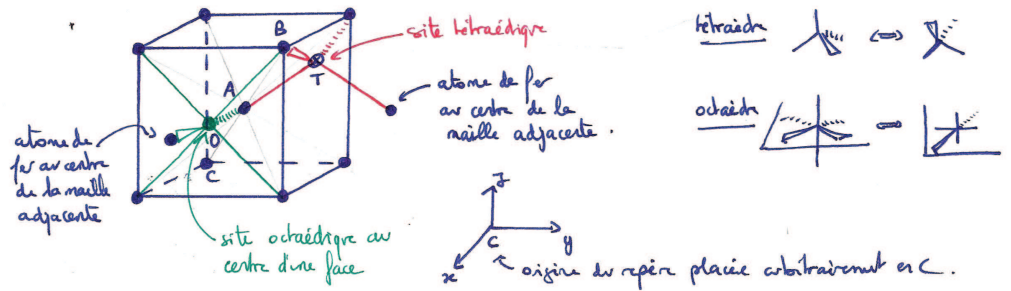 B
site tétraédrique
T
A
O
C
atome de fer
au centre de la
maille adjacente.
atome de
fer au centre
de la maille
adjacente
site octaédrique au
centre d'une face
z
C
y
x
origine du repère placée arbitrairement en C.
tétraèdre
octaèdre